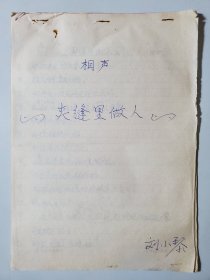 相声
夹缝里做人
刘小琴